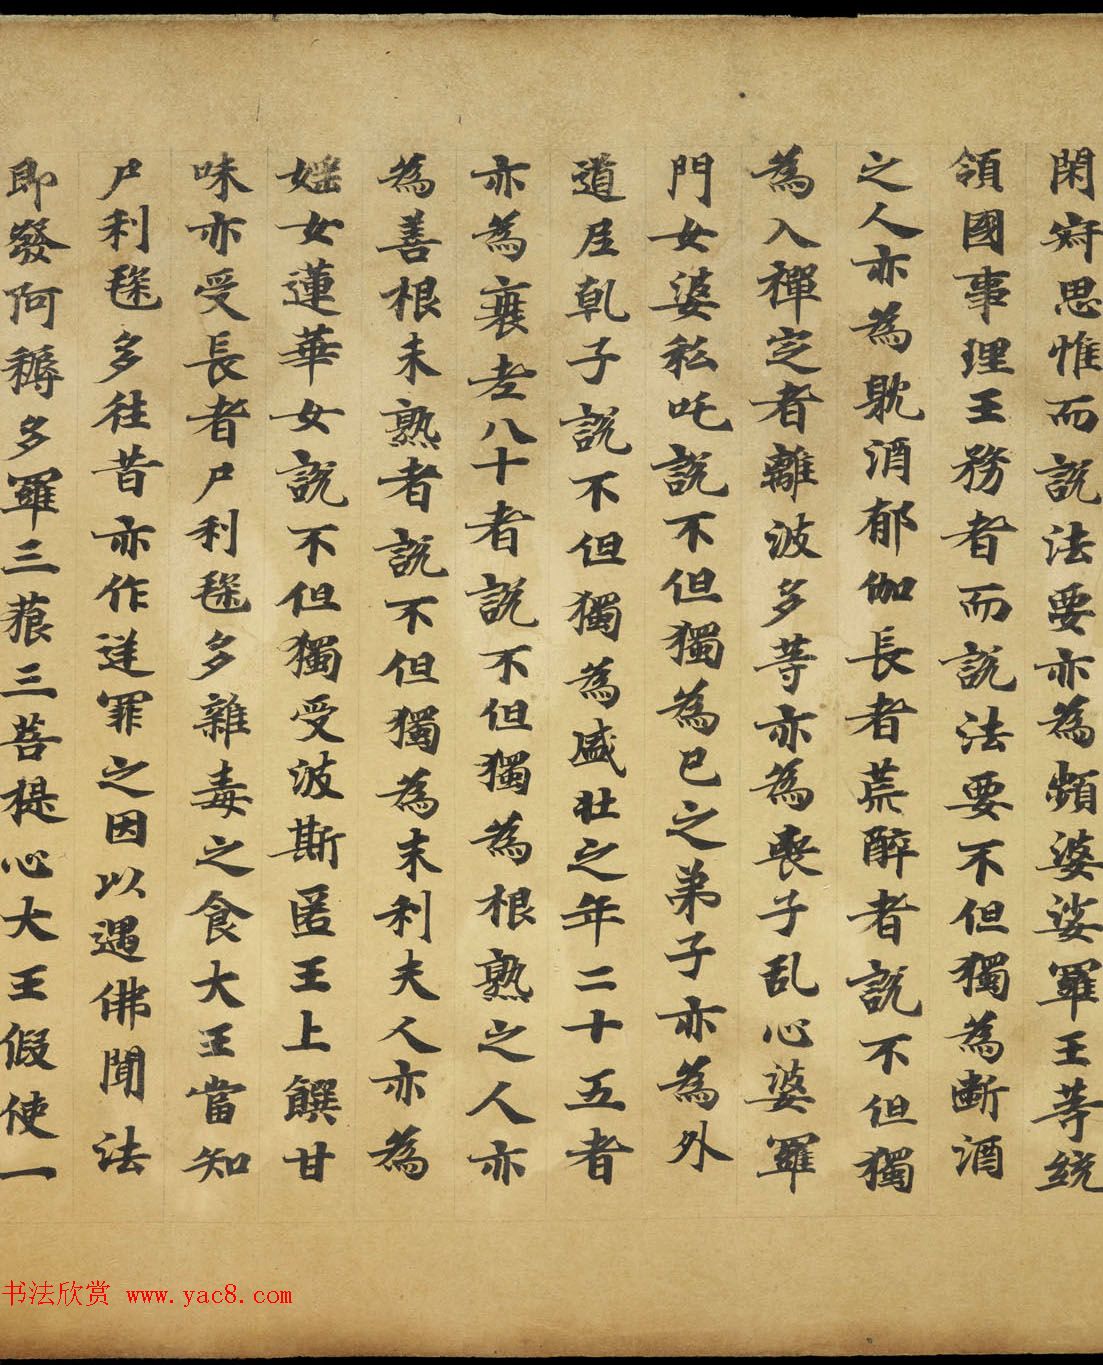 閑寂思惟而説法要亦為頻婆娑羅王等統
領國事理王務者而説法要不但獨為斷酒
之人亦為躭酒郁伽長者荒醉者説不但獨
為入禪定者離波多等亦為喪子乱心婆羅
門女婆私吒説不但獨為己之弟子亦為外
道尼乹子説不但獨為盛壮之年二十五者
亦為衰老八十者説不但獨為根熟之人亦
為善根未熟者説不但獨為末利夫人亦為
婬女蓮華女説不但獨受波斯匿王上饌甘
味亦受長者尸利毱多雜毒之食大王當知
尸利毱多往昔亦作逆罪之因以遇佛聞法
即發阿耨多羅三藐三菩提心大王假使一
书法欣赏 www.yac8.com